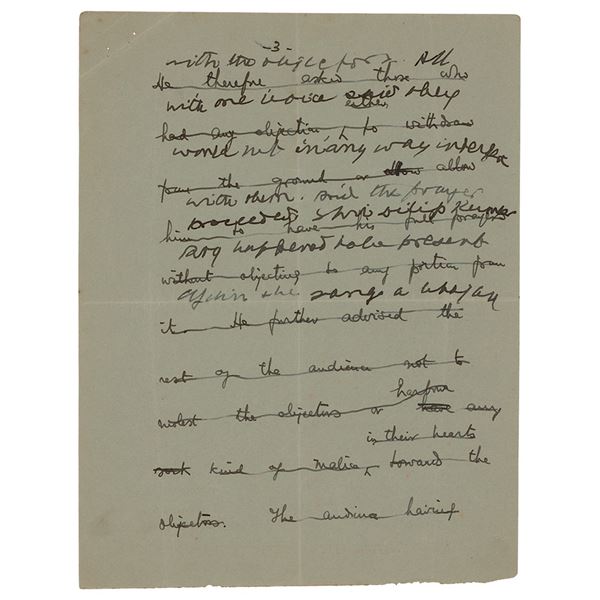 -3-
with the whole party. All
He therefore asked those who
with one voice said they
either
had any objection, to withdraw
would not in any way interfere
from the ground or allow allow
with them. said the prayer
proceeded. Shri Dilip Kumar
him to have his full prayer
Roy happened to be present
without objecting to any portion from
again & he sang a bhajan
it. He further advised the
rest of the audience not to
harbour
molest the objectors or have any
in their hearts
such kind of malice, towards the
objectors. The audience having